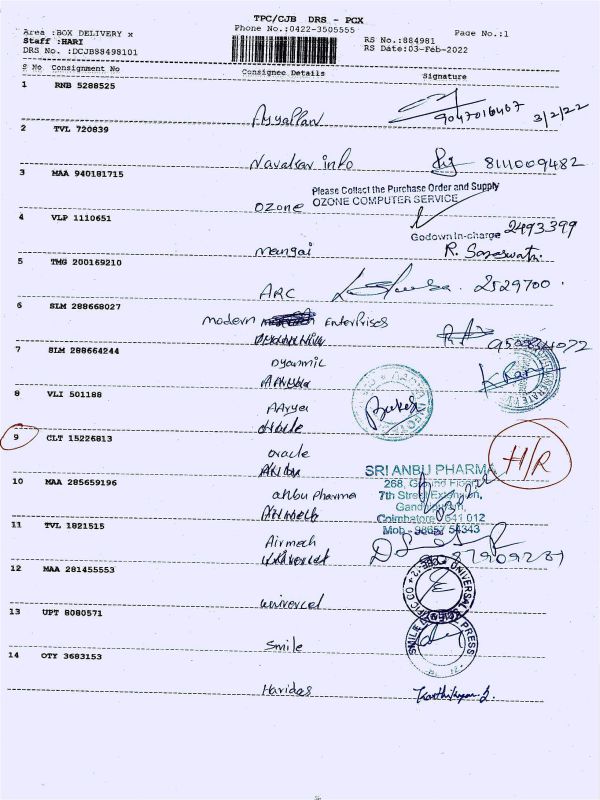 TPC/CJB DRS - PCX
Area :BOX DELIVERY x
Phone No.:0422-3505555
Page No.:1
Staff :HARI
RS No.:884981
DRS No. :DCJB88498101
RS Date:03-Feb-2022
S No Consignment No Consignee Details Signature
1 RNB 5288525
Ayyallan 9047016467 3/2/22
2 TVL 720839
Navalsar info 8111009482
3 MAA 940181715
Please Collact the Purchase Order and Supply
OZONE OZONE COMPUTER SERVICE
4 VLP 1110651
2493399
Godown In-charge
mangai R. Saraswathi
5 TMG 200169210
ARC 2529700
6 SLM 288668027
modern Enterprises
7 SLM 288664244
Dyanmic
8 VLI 501188
Aarya
9 CLT 15226813
H/R
oracle
SRI ANBU PHARMA
10 MAA 285659196
268, Ground Floor
anbu pharma 7th Street Extension,
Gandhipuram,
Coimbatore 641 012
11 TVL 1821515
Mob - 98657 54343
Airmech
12 MAA 281455553
univercel
13 UPT 8080571
Smile
SMILE PRESS
14 OTY 3683153
Haridas Karthikeyan